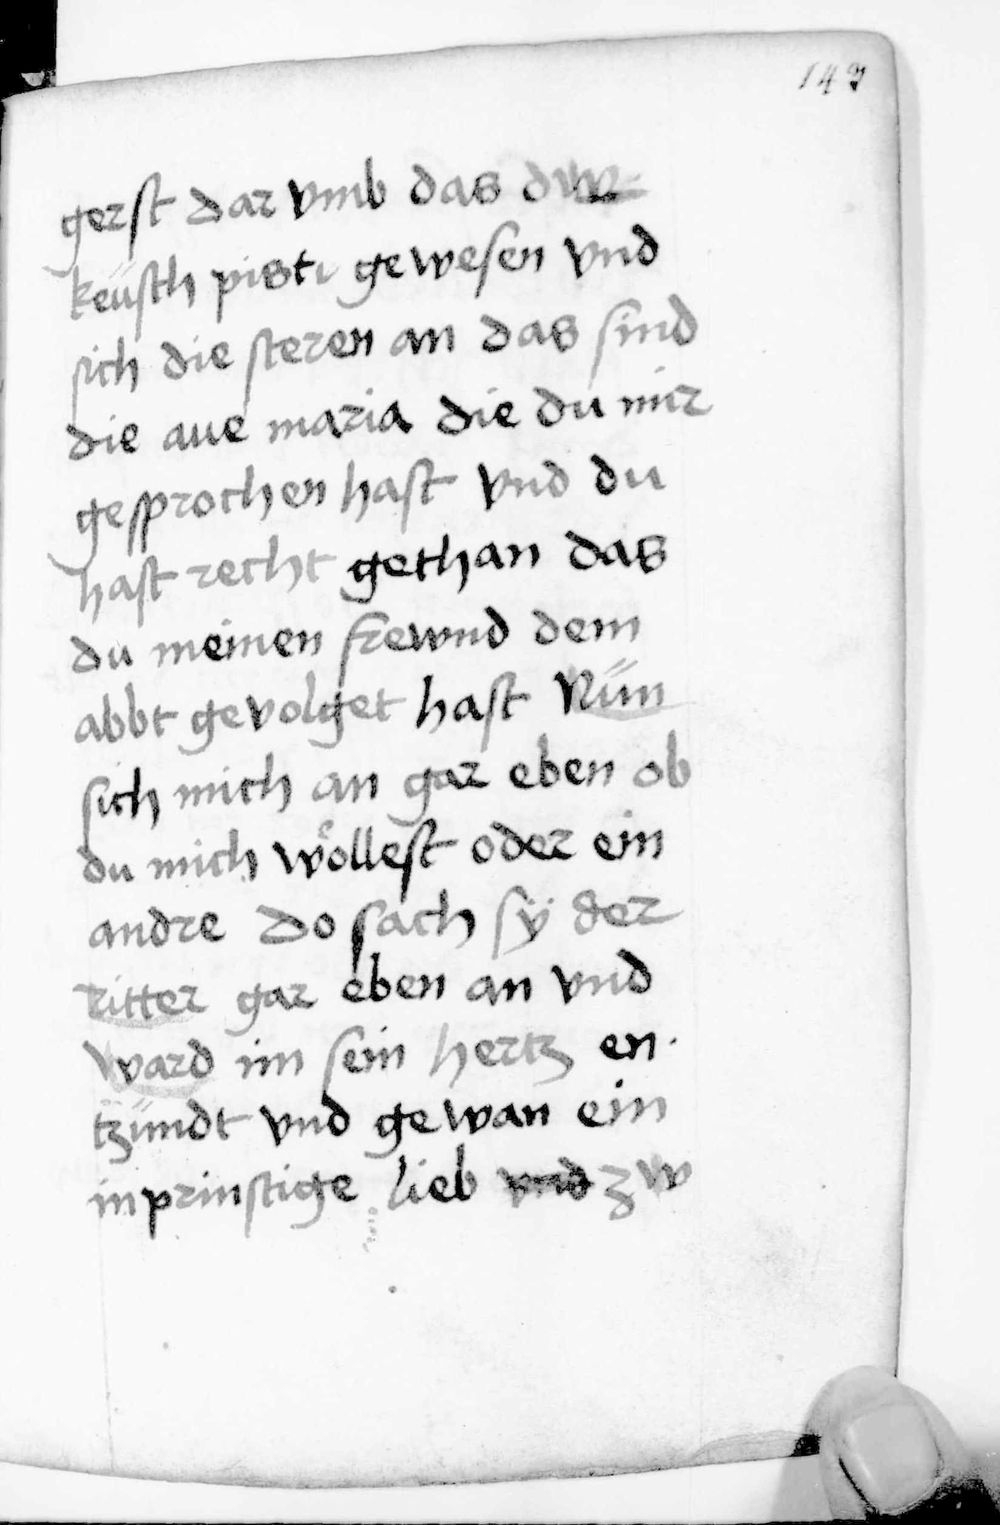 147
gerſt dar vmb das dw
keüſch piſtı geweſen vnd
ſich die ſteren an das ſind
die aue maria die du mir
geſprochen haſt vnd du
haſt recht gethan das
du meinen frewnd dem
abbt gevolget haſt Nün
ſich mich an gar eben ob
du mich woͤlleſt oder ein
andre Do ſach ſÿ der
ritter gar eben an vnd
ward im ſein hertz en·
tzündt vnd gewan ein
inprinſtige lieb vnd zw